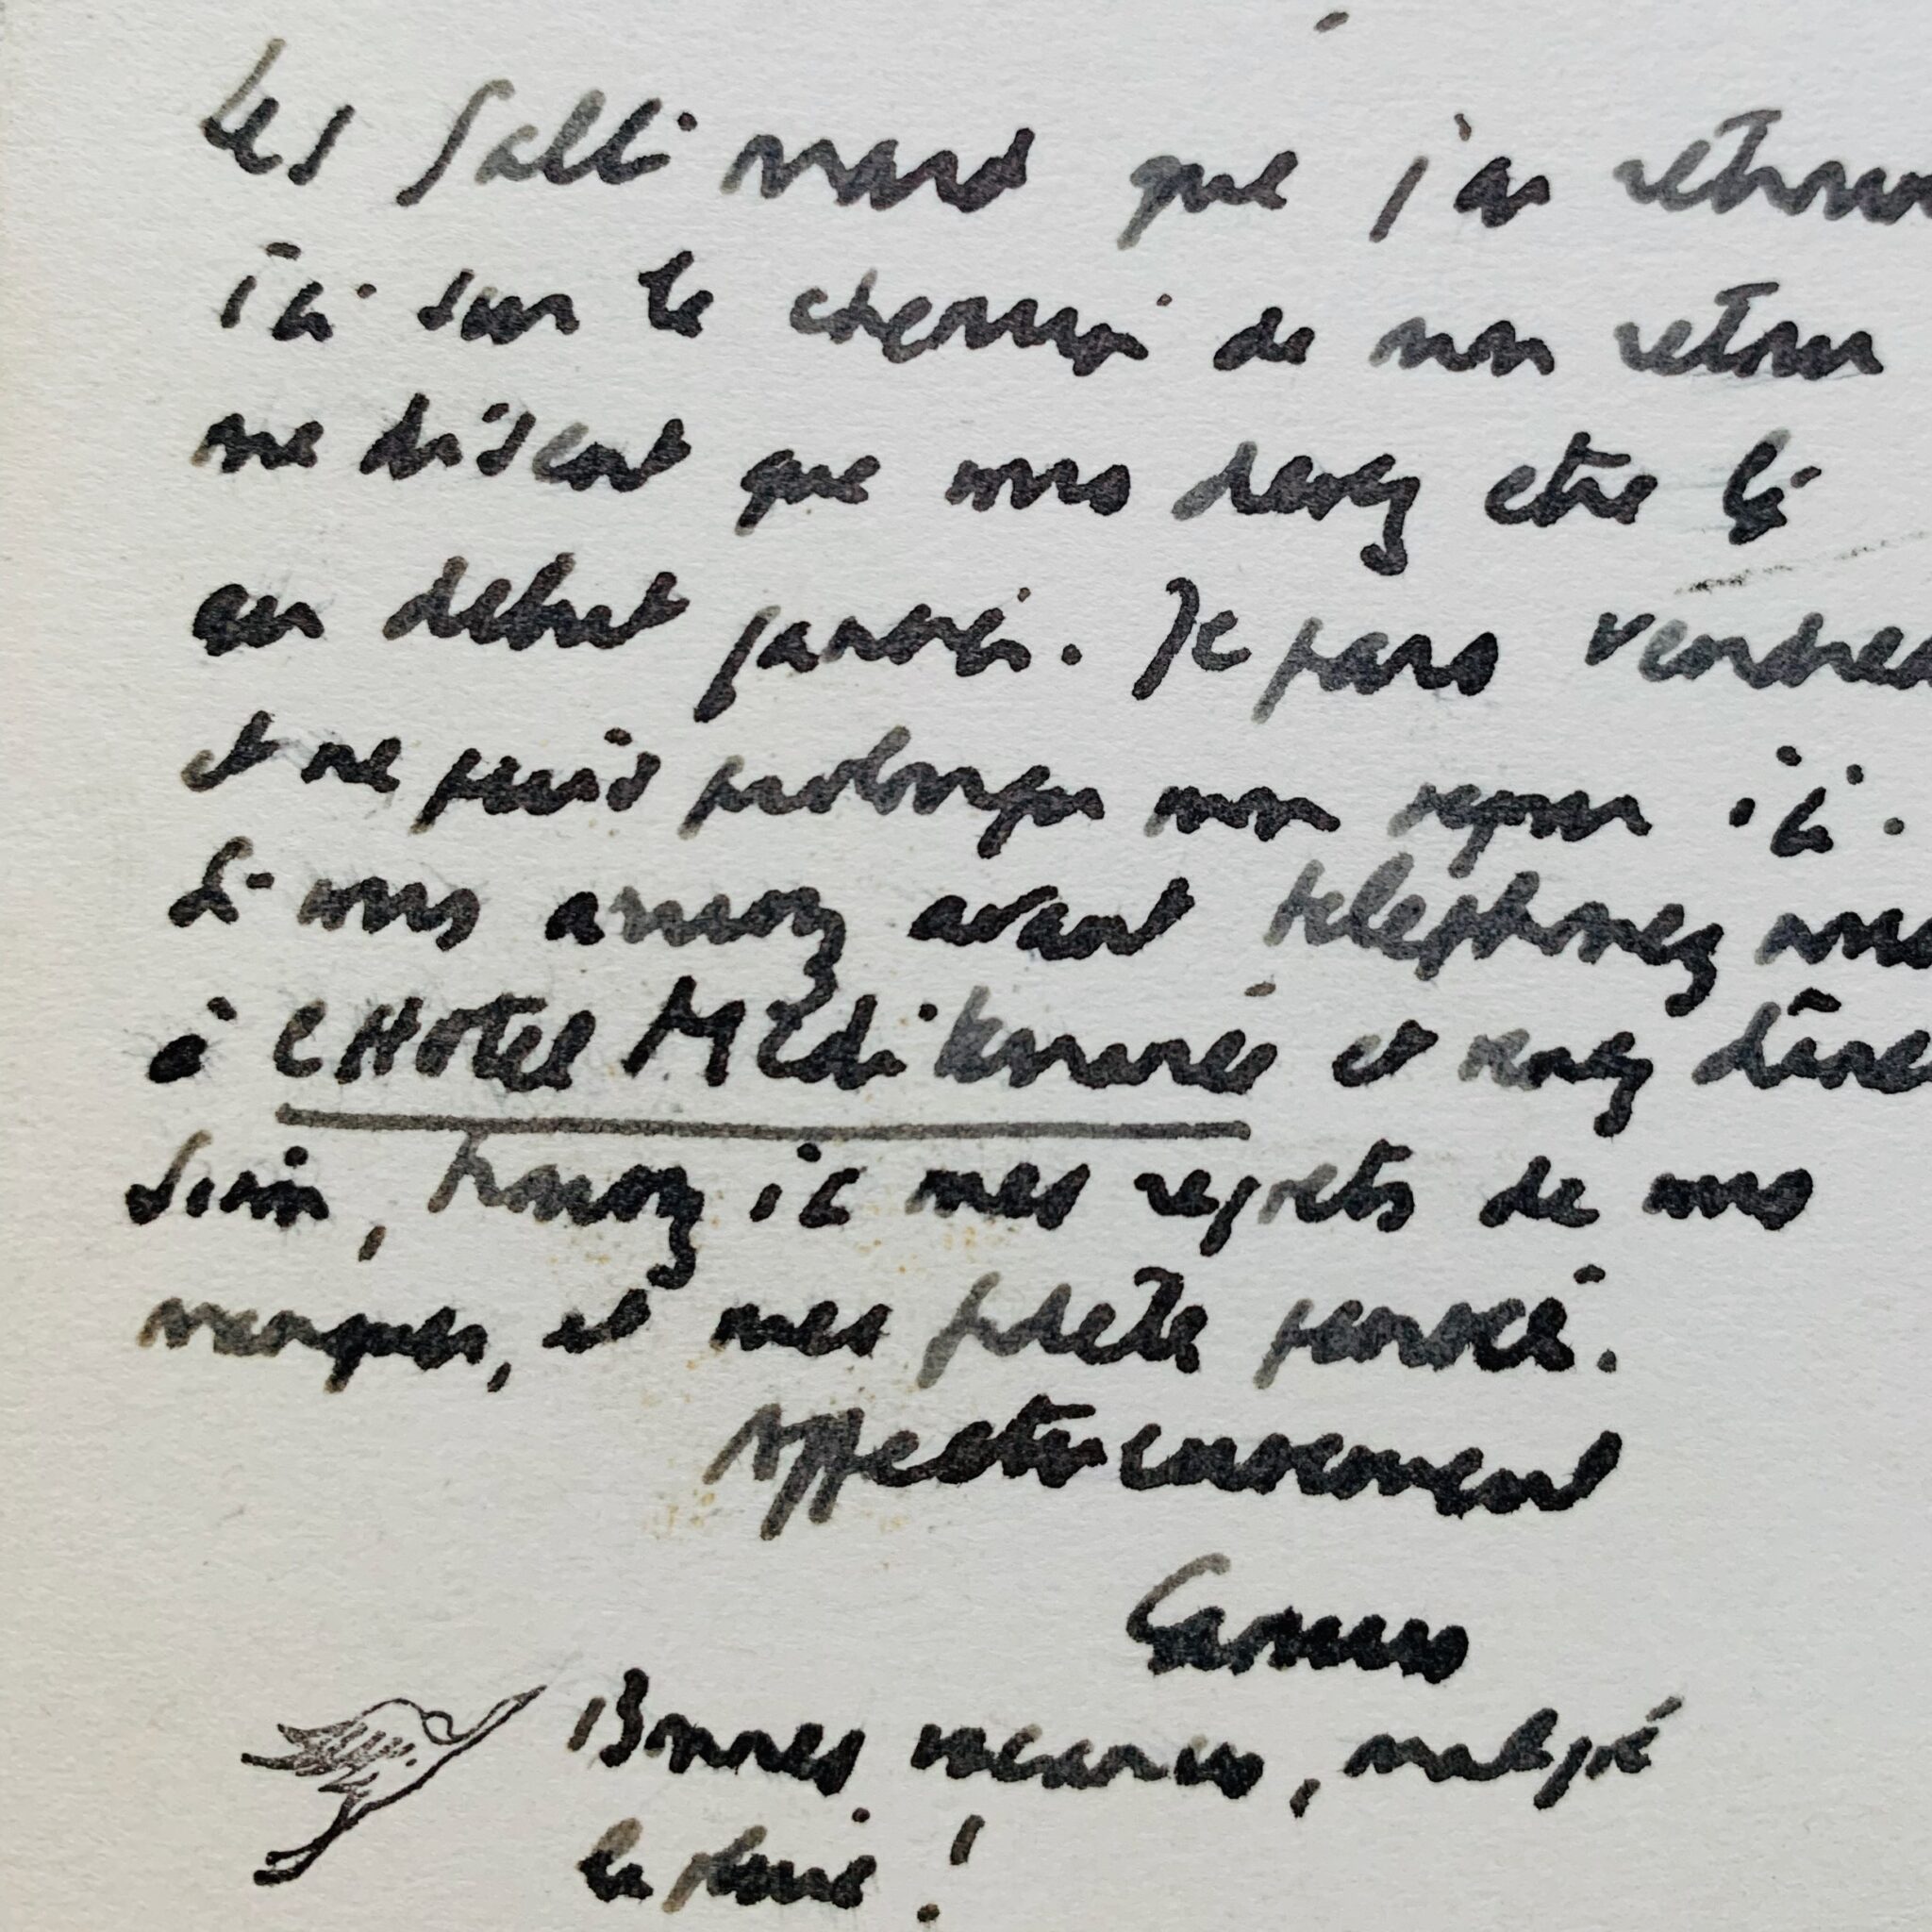 Les Gallimard que j'ai retrouv
ici sur le chemin de mon retour
me disent que vous devez être ici
au début janvier. Je pars vendred
et ne puis prolonger mon séjour ici.
Si vous arrivez avant téléphonez moi
à l'Hotel Méditerranée et venez dîner
Sinon, trouvez ici mes regrets de vous
manquer, et mes fidèles pensées.
Affectueusement
Camus
Bonnes vacances, malgré
la pluie !